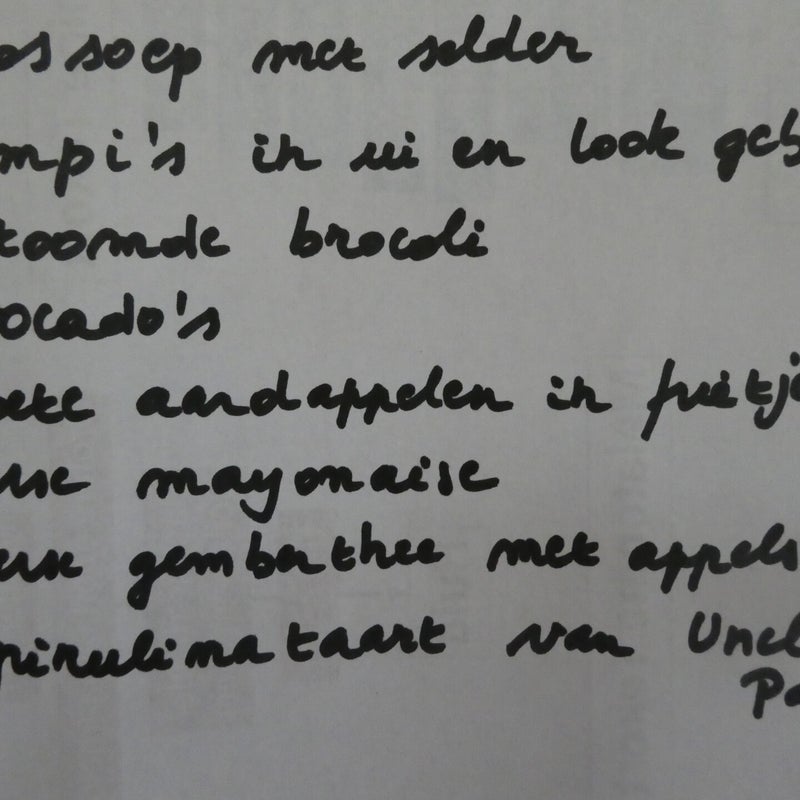 os soep met selder
mpi's in ui en look geb
toomde brocoli
ocado's
oete aardappelen in frietje
rse mayonaise
erse gemberthee met appels
pirulinataart van Uncl
Pa